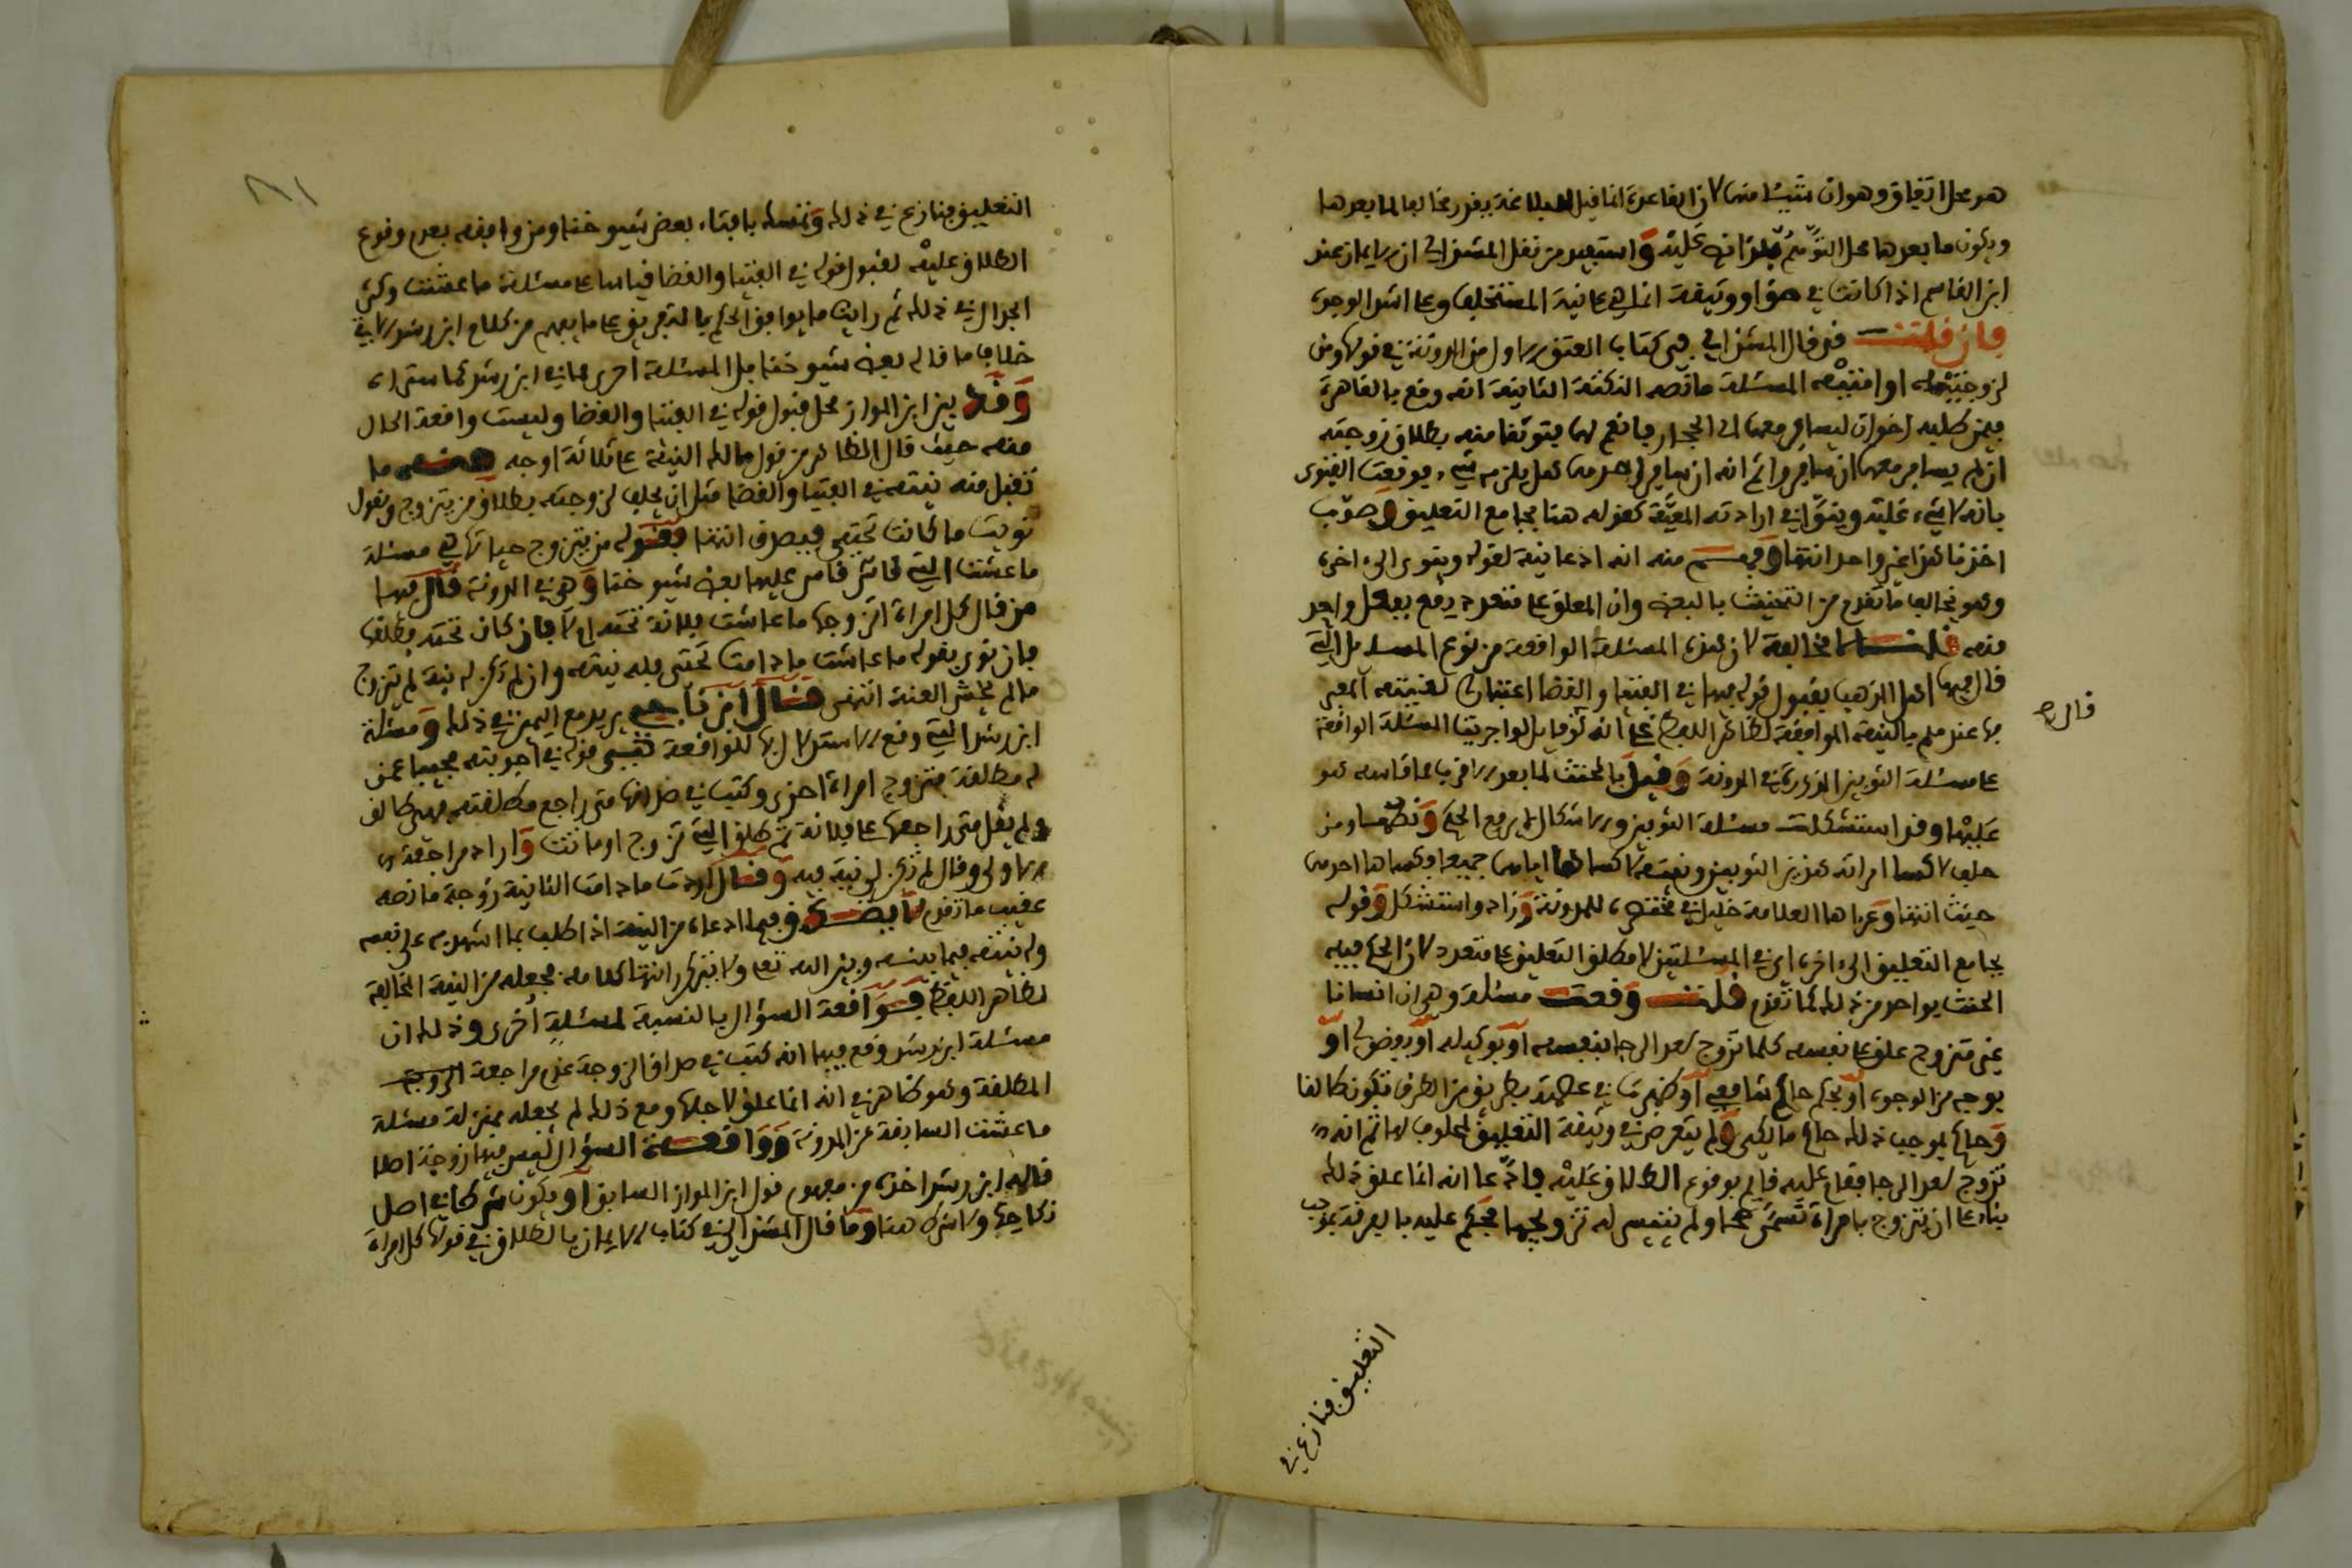 هو محل اتفاق وهو ان شيئا منها لان القاعدة انما قبل المبالغة يقدر مخالفا لما بعدها
ويكون ما بعدها محل التوهم عليه واستبعد من نقل المشذالي ان الايمان عند
ابن القاسم اذا كانت في حق او وثيقة انما هي على نية المستحلف وعلى اشد الوجوه
فان قلت قد قال المشذالي في كتاب العتق الاول من المدونة في قولها ومن
لزوجتيه او امتيه المسئلة ما نصه النكتة الثانية انه وقع بالقاهرة
فيمن طلبه اخوان ليسافر معهما الى الحجاز فانعم لهما فتوثقا منه بطلاق زوجته
ان لم يسافر معهما ان سافروا ثم انه ان سافر احدهما هل يلزمه شيء فوقعت الفتوى
بانه لا شيء عليه وينوى في ارادته المعية كقوله هنا بجامع التعليق وصوب
اخذنا هذا غير واحد انتهى وفهم منه انه ادعا نية لقوله وينوى الى اخره
وهو مخالف ما تقدم من التحنيث بالبعض وان المعلق على متعدد يقع بفعل واحد
منه قلنا لا مخالفة لان هذه المسئلة الواقعة من نوع المسائل التي
قال فيها اهل المذهب بقبول قوله فيها في الفتيا والقضا اعتبارا لنيته المعبر
بها عندهم بالنية الموافقة لظاهر اللفظ على انه لو قابل لواجريت المسئلة الواقعة
على مسئلة الثوبين المذكورة في المدونة وقيل بالحنث لما بعد الاقرب ما قاسه هو
عليها وقد استشكلت مسئلة الثوبين والاشكال لا يرفع الحكم ونصها ومن
حلف لا كسا امراته هذين الثوبين ونيته لا كساها اياهما جميعا وكساها احدهما
حنث انتهى وعزاها العلامة خليل في مختصره للمدونة وزاد واستشكل وقوله
بجامع التعليق الى اخره اي في المسئلتين لا مطلق التعليق على متعدد لان الحكم فيه
الحنث بواحد من ذلك كما تقدم قلت وقعت مسئلة وهي ان انسانا
غير متزوج علق على نفسه كلما تزوج بعد الرجا بنفسه او بوكيله او بفضولي او
بوجه من الوجوه او بحكم حاكم شافعي او ظهرت في عصمته بطريق من الطرق فتكون طالقا
وحكم بموجب ذلك حاكم مالكي ولم يتعرض في وثيقة التعليق لمحلوف لها ثم انه
تزوج بعد الرجا فقام عليه قايم بوقوع الطلاق عليه فادعا انه انما علق ذلك
بناء على ان يتزوج بامراة تسمى محا ولم يتيسر له تزويجها فحكم عليه بالفرقة بموجب
قال صح
التعليق فنازع في
التعليق فنازع في ذلك وتمسك بافتاء بعض شيوخنا ومن وافقه بعدم وقوع
الطلاق عليه لقبول قوله في الفتيا والقضا قياسا على مسئلة ما عشت وكثر
الجدال في ذلك ثم رايت ما يوافق الحكم بالتفريق على ما يفهم من كلام ابن رشد لا في
خلاف ما قاله بعض شيوخنا بل المسئلة احرى مما في ابن رشد كما ستراه
وقد بين ابن المواز محل قبول قوله في الفتيا والقضا وليست واقعة الحال
منه حيث قال الظاهر من قول مالك النية على ثلاثة اوجه ما
تقبل منه نيته في الفتيا والقضا مثل ان يحلف لزوجته بطلاق من يتزوج ويقول
نويت ما كانت تحتي فيصدق انتهى وقوله من يتزوج حياتها هي مسئلة
ما عشت التي قاس عليها بعض شيوخنا وهي في المدونة قال فيها
من قال كل امراة اتزوجها ما عاشت فلانة تحته ام لا فان كان تحته فطلقها
فان نوى بقوله ما عاشت ما دامت تحتي فله نيته وان لم تكن له نية لم يتزوج
ما لم يخش العنت انتهى قال ابن ناجي يريد مع اليمين في ذلك ومسئلة
ابن رشد التي وقع الاستدلال بها للواقعة فهي قوله في اجوبته مجيبا عمن
له مطلقة فتزوج امراة اخرى وكتب في صداقها متى راجع مطلقته فهي طالق
ولم يقل متى راجعها على فلانة ثم طلق التي تزوج او ماتت واراد مراجعة
الاولى وقال لم تكن لي نية فيه وقال اردت ما دامت الثانية زوجة ما نصه
عقيب ما تقدم لا يصدق فيما ادعاه من النية اذا طلب بما اشهد به على نفسه
وله نيته فيما بينه وبين الله تعا ولا يتزكر انتهى كلامه فجعله من النية المخالفة
لظاهر اللفظ فواقعة السؤال بالنسبة لمسئلة اخرى وذلك ان
مسئلة ابن رشد وقع فيها انه كتب في صداق الزوجة عند مراجعة الزوجة
المطلقة وهو ظاهر في انه انما علق لاجلها ومع ذلك لم يجعله بمنزلة مسئلة
ما عشت السابقة عن المدونة وواقعة السؤال ليس فيها زوجة اصلا
قاله ابن رشد اخذه من مفهوم قول ابن المواز السابق او يكون شرطا في اصل
نكاحها ولا شرط هنا وما قال المشذالي في كتاب الايمان بالطلاق في قولها كل امراة